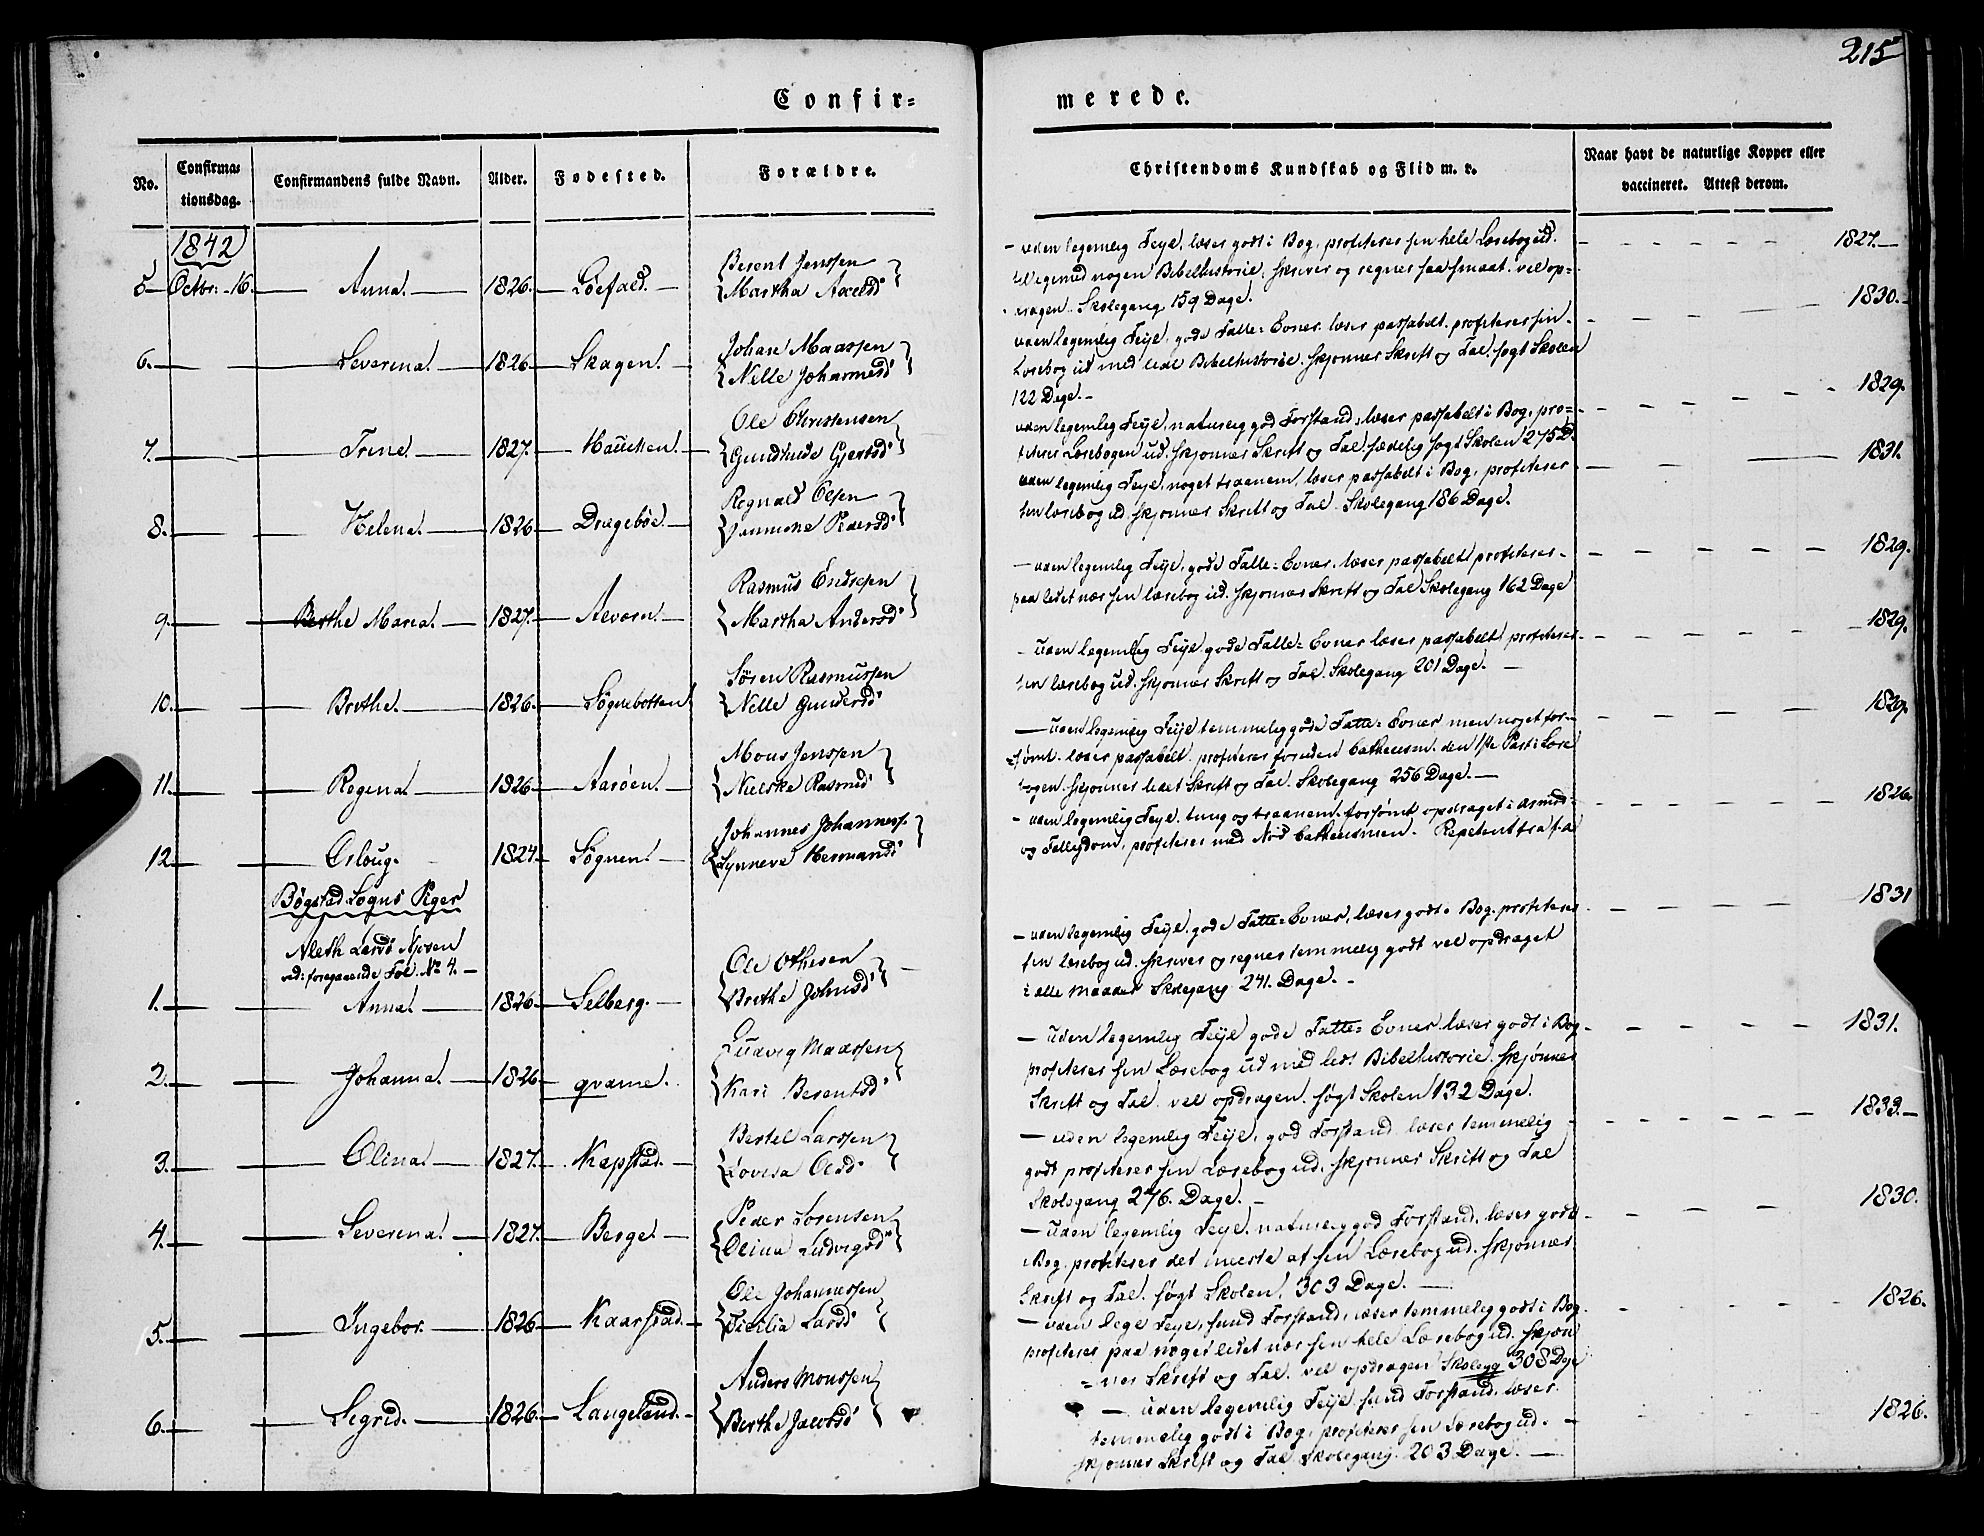 215
Confir=
merede.
No.
Confirma=
tionsdag.
Confirmandens fulde Navn.
Alder.
Fødested.
Forældre.
Christendoms Kundskab og Flid m. v.
Naar havt de naturlige Kopper eller
vaccineret. Attest derom.
1842
5 Octbr: 16. Anna. 1826. Berent Jenssen
Martha
uden legemlig Feyl, læser godt i Bog, profiterer sin hele Læsebog ud.
nogen Bibelhistorie, skriver og regner saa smaat. vel op=
dragen. Skolegang 159 Dage.
1827.
6. Severina. 1826 Skagen. Johan Maassen
Nille Johannesd
uden legemlig Feyl, gode Fatte=Evner, læser passabelt, profiterer sin
Læsebog ud med Bibelhistorie. skjønner Skrift og Tal. søgt Skolen
122 Dage.
1830.
7. Trine. 1827. Ole Christensen
Gjertsd
uden legemlig Feyl, naturlig god Forstand, læser passabelt i Bog, pro=
fiterer Læsebogen ud. skjønner Skrift og Tal. sædelig søgt Skolen 275 D.
1829.
8. Helena. 1826 Dragebøe. Regnald Olsen
Pedersd
uden legemlig Feyl, noget træ nem, læser passabelt i Bog, profiterer
sin læsebog ud. skjønner Skrift og Tal. Skolegang 186 Dage.
1831.
9. Berthe Maria. 1827. Rasmus Endresen
Martha Andersd
uden legemlig Feyl, gode Fatte=Evner, læser passabelt profiterer
paa lidet nær sin læsebog ud. skjønner Skrift og Tal Skolegang 162 Dage
1829.
10. Brithe. 1826. Søgnebotten. Søren Rasmussen
Nille Gundersd
uden legemlig Feyl gode Fatte=Evner læser passabelt profiterer
sin læsebog ud. skjønner Skrift og Tal. Skolegang 201 Dage.
1829.
11. Regina. 1826 Aarøen. Mons Jenssen
Nilske Rasmd
uden legemlig Feyl temmelig gode Fatte=Evner men noget for=
sømt. læser passabelt. profiterer foruden Cathecism. den 1ste Part i Læse
bogen. skjønner lidet Skrift og Tal. Skolegang 256 Dage.
1829.
12 Osloug. 1824. Søgnen. Johannes Johanness.
Synneve Hermands
uden legemlig Feyl, tung og træ nem. forsømt opdraget i Armod
og Fattigdom, profiterer med Nød Cathecismen. Repetent fra f.a
1826
Bøgstad Sogns Piger
vid: foregaaende Fol. No 4.
1. Anna. 1826. Selberg. Ole Othesen
Brithe Johnsd
uden legemlig Feyl, gode Fatte=Evner, læser godt i Bog. profiterer
sin læsebog ud. skriver og regner temmelig godt vel opdraget
i alle Maader Skolegang 241. Dage.
1831
2. Johanna. 1826 qvame. Ludvig Maassen
Kari Berentsd
uden legemlig Feyl gode Fatte=Evner læser godt i Bog
profiterer sin Læsebog ud med lidt Bibelhistorie. Skjønner
Skrift og Tal. vel opdragen. søgt Skolen 132 Dage.
1831.
3. Olina. 1827. Kapstad. Bertel Larssen
Lovisa Olsd
uden legemlig Feyl, god Forstand læser temmelig
godt profiterer sin Læsebog ud. skjønner Skrift og Tal
Skolegang 276. Dage.
1833.
4. Severina. 1827. Berge. Peder Sørensen
Olina Ludvigsd
uden legemlig Feyl. naturlig god Forstand, læser godt
i Bog. profiterer det meeste af sin Læsebog ud. skjønner
Skrift og Tal. søgt Skolen. 303 Dage.
1830.
5. Ingebor. 1826 Kaarstad. Ole Johannessen
Cicilia Larsd
uden lege Feyl, sund Forstand, læser temmelig godt i Bog.
profiterer paa noget lidet nær sin hele Læsebog ud. skjøn
=ner Skrift og Tal. vel opdragen Skolegg 308 Dage
1826.
6. Sigrid. 1826. Langeland. Anders Monssen
Berthe Jacobsd
uden legemlig Feyl sund Forstand, læser
temmelig godt i Bog, profiterer sin Læsebog ud.
skjønner Skrift og Tal. Skolegang 203 Dage.
1826.